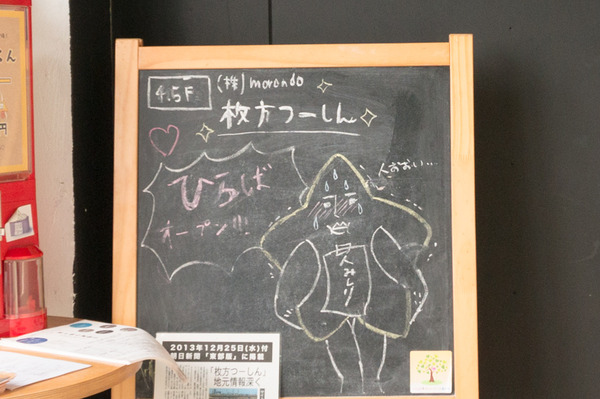 4.5F
(株)morondo
枚方つーしん
ひらば
オープン!!!
人おおい…
人みしり
2013年12月25日(水)付
朝日新聞「東部版」に掲載
「枚方つーしん」
地元情報深く